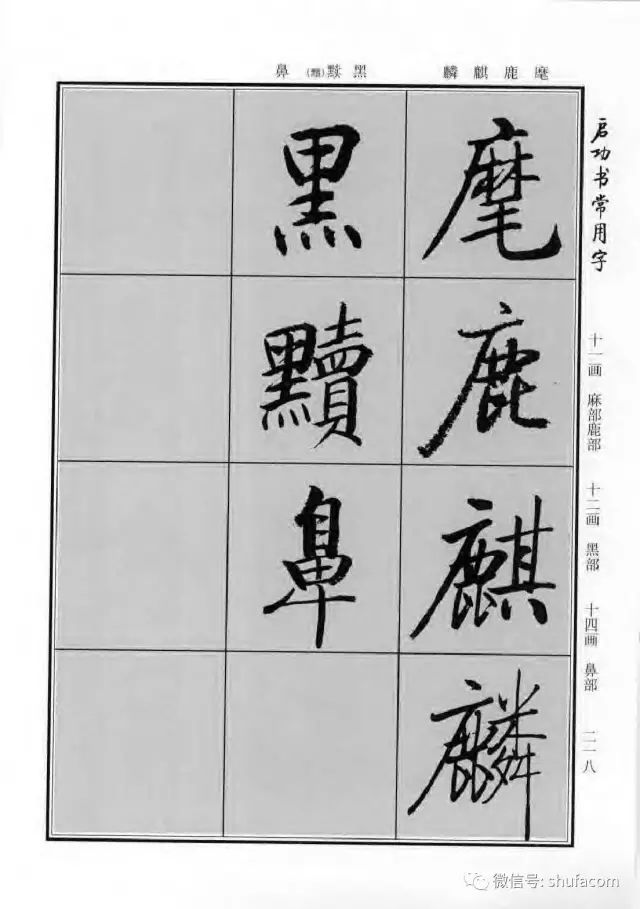 麾鹿麒麟 黑黩(黷)鼻
启功书常用字
十一画 麻部鹿部 十二画 黑部 十四画 鼻部 二一八
麾
鹿
麒
麟
黑
黷
鼻
微信号: shufacom